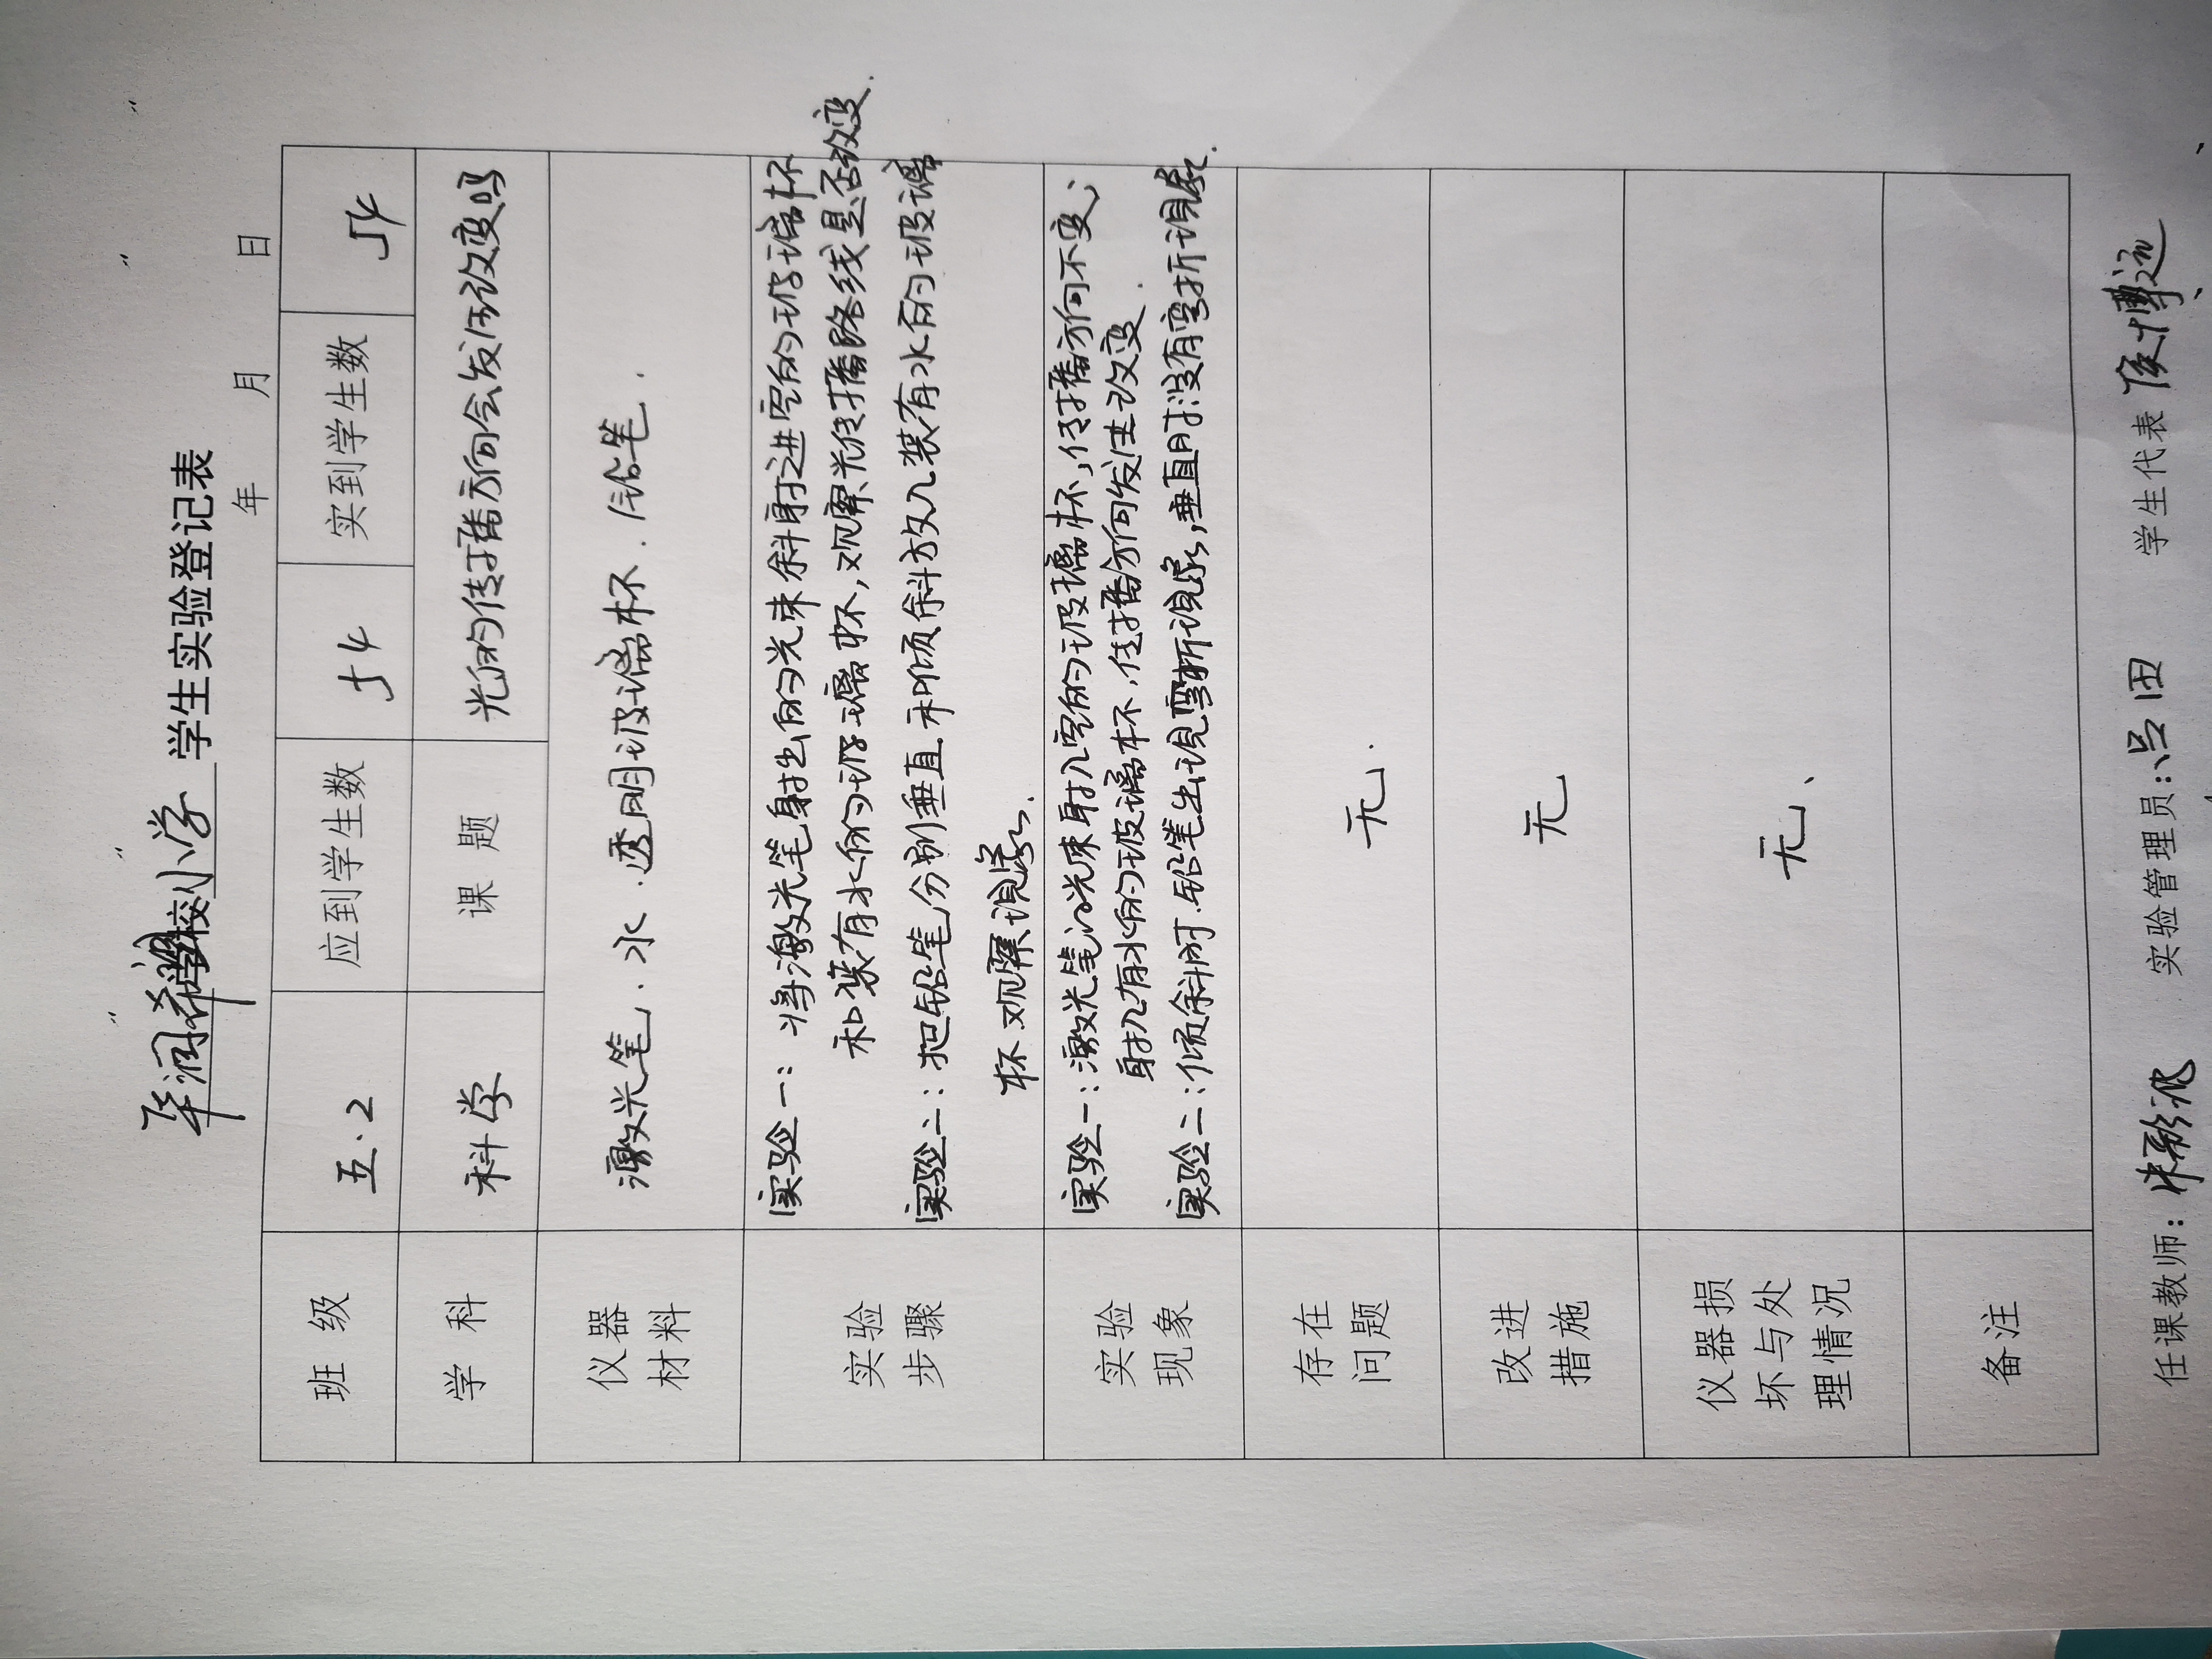 华润希望小学 学生实验登记表
年 月 日
班 级 五.2 应到学生数 54 实到学生数 54
学 科 科学 课 题 光的传播方向会发生改变吗
仪器
材料
激光笔.水.透明玻璃杯.铅笔.
实验
步骤
实验一:将激光笔射出的光束斜射进空的玻璃杯
和装有水的玻璃杯,观察光传播路线是否改变.
实验二:把铅笔分别垂直和倾斜放入装有水的玻璃
杯观察现象.
实验
现象
实验一:激光笔的光束射入空的玻璃杯,传播方向不变;
射入有水的玻璃杯,传播方向发生改变.
实验二:倾斜时.铅笔出现弯折现象,垂直时没有弯折现象.
存在
问题
无.
改进
措施
无
仪器损
坏与处
理情况
无、
备注
任课教师: 实验管理员:吕田 学生代表 侯博远